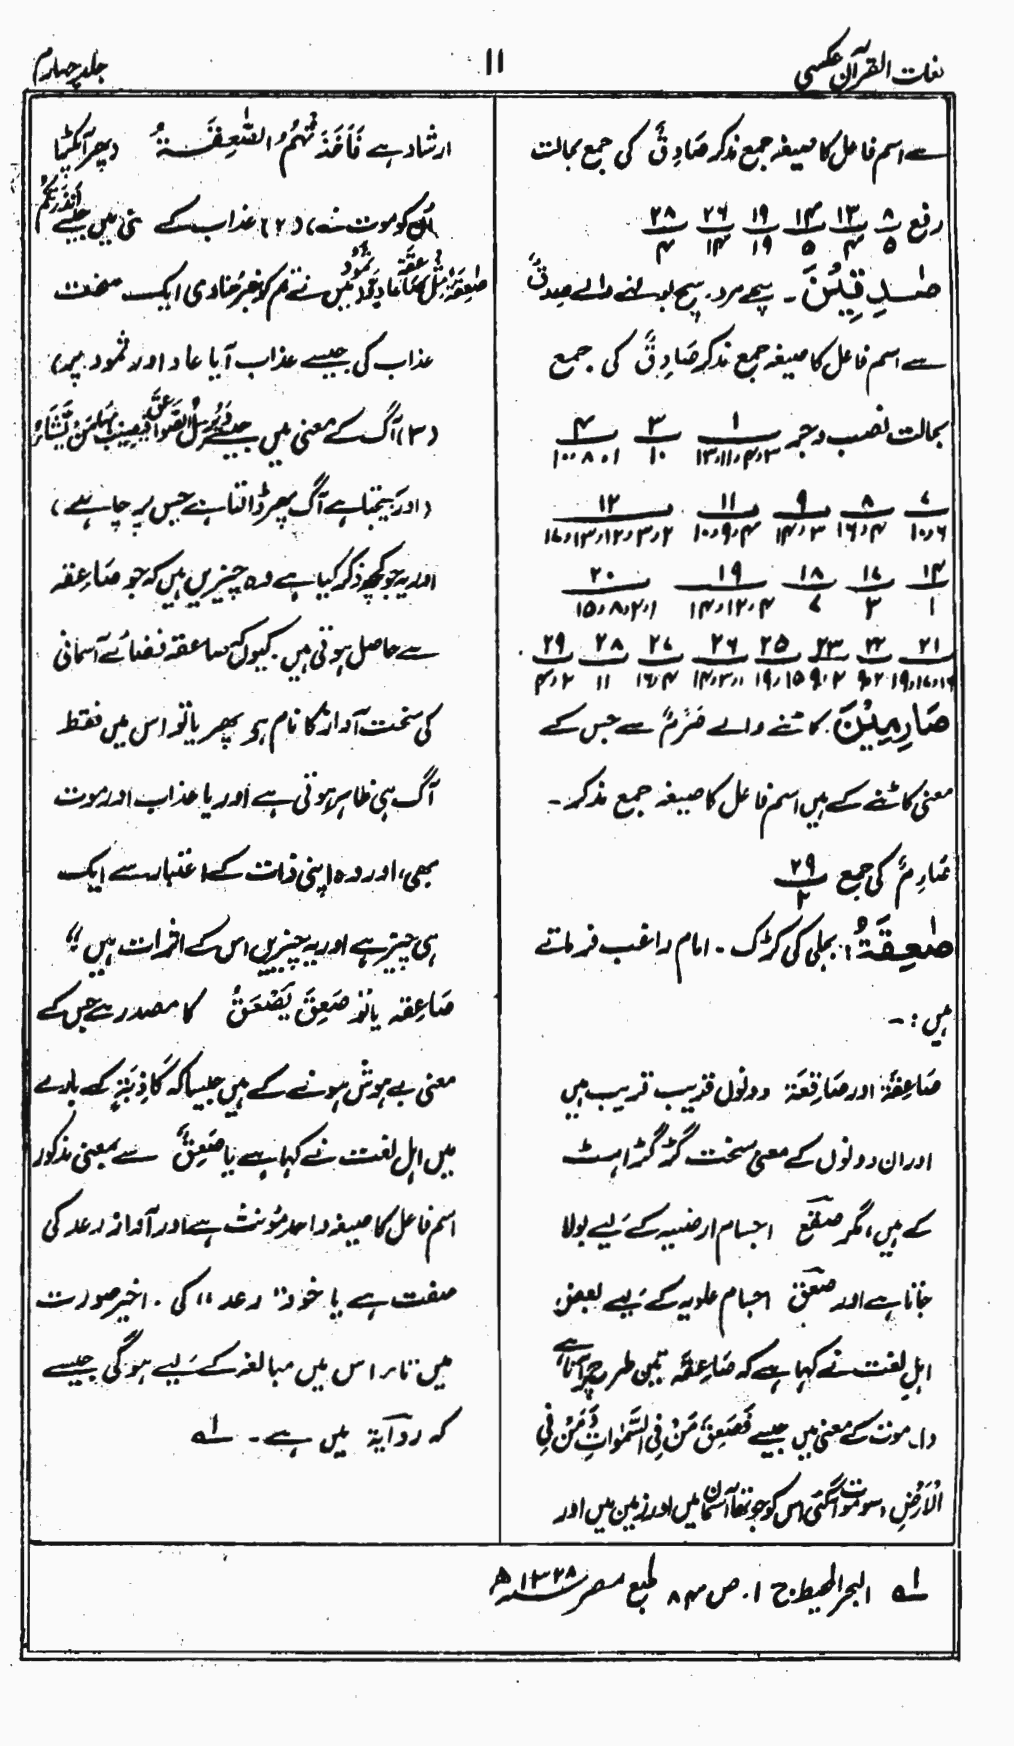 لغات القرآن عکسی
۱۱
جلد چہارم
سے اسم فاعل کا صیغہ جمع مذکر صَادِقٌ کی جمع بحالت
رفع ۸/۵ ۱۳/۴ ۱۴/۵ ۱۹/۱۹ ۲۶/۱۴ ۲۸/۴
صٰدِقِیْنَ ۔ سچے مرد۔ سچ بولنے والے صِدْقٌ
سے اسم فاعل کا صیغہ جمع مذکر صَادِقٌ کی جمع
بحالت نصب وجر ۱/۳،۴،۱۱،۱۳ ۳/۱۰ ۴/۱،۸،۱۰
۷/۶،۱۰ ۸/۴،۱۶ ۹/۳،۱۴ ۱۱/۴،۹،۱۰ ۱۲/۲،۳،۱۲،۱۳،۱۷
۱۴/۱ ۱۷/۳ ۱۸/۷ ۱۹/۴،۱۲،۱۴ ۲۰/۱،۲،۸،۱۵
۲۱/۱۶،۱۷،۱۹ ۲۲/۲،۹ ۲۳/۲،۹ ۲۵/۱۵،۱۹ ۲۶/۱،۳،۱۴ ۲۷/۴،۱۶ ۲۸/۱۱ ۲۹/۲،۴
صَارِمِیْنَ ۔ کاٹنے والے صَرْمٌ سے جس کے
معنی کاٹنے کے ہیں اسم فاعل کا صیغہ جمع مذکر ۔
صَارِمٌ کی جمع ۲۹/۲
صٰعِقَۃُ: بجلی کی کڑک ۔ امام راغب فرماتے
ہیں :۔
صَاعِقَۃ اور صَاقِعَۃ دونوں قریب قریب ہیں
اور ان دونوں کے معنی سخت گڑگڑاہٹ
کے ہیں، مگر صقع اجسام ارضیہ کے لیے بولا
جاتا ہے اور صعق اجسام علویہ کے لیے بعض
اہل لغت نے کہا ہے کہ صَاعِقَہ تین طرح پر آتا ہے
(۱) موت کے معنی میں جیسے فَصَعِقَ مَنْ فِی السَّمٰوَاتِ وَمَنْ فِی
الْاَرْضِ (سو موت آگئی اس کو جو تھا آسمان میں اور زمین میں اور
ارشاد ہے فَاَخَذَتْہُمُ الصّٰعِقَۃُ (پھر آپکڑا
اُن کو موت نے) (۲) عذاب کے معنی میں جیسے اَنْذَرْتُکُمْ
صٰعِقَۃً مِّثْلَ صَاعِقَۃِ عَادٍ وَّثَمُوْدَ (میں نے تم کو خبر سنا دی ایک سخت
عذاب کی جیسے عذاب آیا عاد اور ثمود پر)
(۳) آگ کے معنی میں جیسے وَیُرْسِلُ الصَّوَاعِقَ فَیُصِیْبُ بِہَا مَنْ یَّشَآءُ
(اور بھیجتا ہے آگ پھر ڈالتا ہے جس پر چاہے)
اور یہ جو کچھ ذکر کیا ہے وہ چیزیں ہیں کہ جو صَاعِقہ
سے حاصل ہوتی ہیں۔ کیونکہ صاعقہ فضائے آسمانی
کی سخت آواز کا نام ہے پھر یا تو اس میں فقط
آگ ہی ظاہر ہوتی ہے اور یا عذاب اور موت
بھی، اور وہ اپنی ذات کے اعتبار سے ایک
ہی چیز ہے اور یہ چیزیں اس کے اثرات ہیں ؎
صَاعِقہ یا تو صَعِقَ یَصْعَقُ کا مصدر ہے جس کے
معنی بے ہوش ہونے کے ہیں جیسا کہ کَاذِبَۃ کے بارے
میں اہل لغت نے کہا ہے یا صَعِقٌ سے بمعنی مذکور
اسم فاعل کا صیغہ واحد مؤنث ہے اور آواز رعد کی
صفت ہے یا خود "رعد" کی ۔ اخیر صورت
میں تاء اس میں مبالغہ کے لیے ہوگی جیسے
کہ روایۃ میں ہے ۔ ۱ـہ
۱ـہ البحر المحیط ج ۱۔ ص ۸۴ طبع مصر ۱۳۲۸ھ